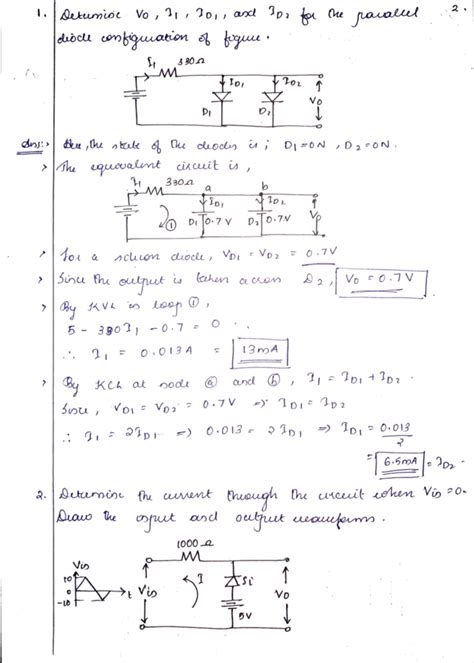 2.
1. Determine Vo, I1, ID1, and ID2 for the parallel
diode configuration of figure.
I1 330Ω
ID1 ID2
D1 D2 Vo
Ans:> , the state of the diodes is; D1=ON, D2=ON.
> The equivalent circuit is,
I1 330Ω a b
ID1 ID2
① D1 0.7V D2 0.7V Vo
> For a silicon diode, VD1 = VD2 = 0.7V
> Since the output is taken across D2, Vo = 0.7V
> By KVL in loop ①,
5 - 330I1 - 0.7 = 0
∴ I1 = 0.013A = 13mA
> By KCL at node ⓐ and ⓑ, I1 = ID1 + ID2.
Since, VD1 = VD2 = 0.7V => ID1 = ID2
∴ I1 = 2ID1 => 0.013 = 2ID1 => ID1 = 0.013
2
= 6.5mA = ID2
2. Determine the current through the circuit when Vin = 0.
Draw the input and output waveforms.
1000Ω
Vin
10
0 t Vin I Si Vo
-10
5V